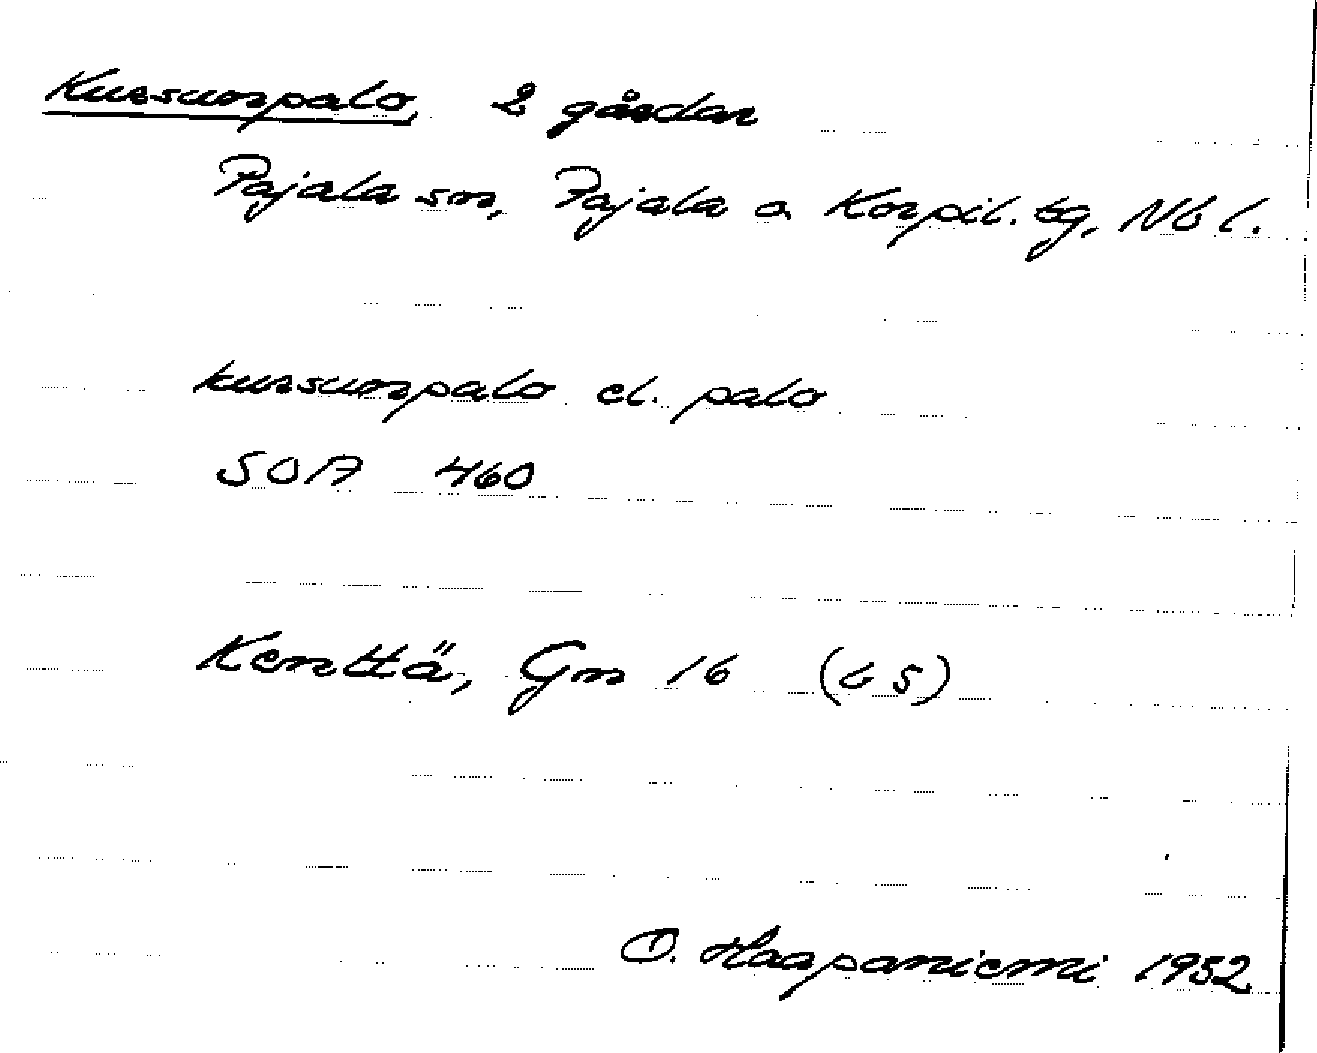 Kursunpalo, 2 gårdar
Pajala sn, Pajala o. Korpil. tg, Nb l.
kursunpalo el. palo
SOA 460
Kenttä, Gn 16 (bs)
O. Haapaniemi 1952